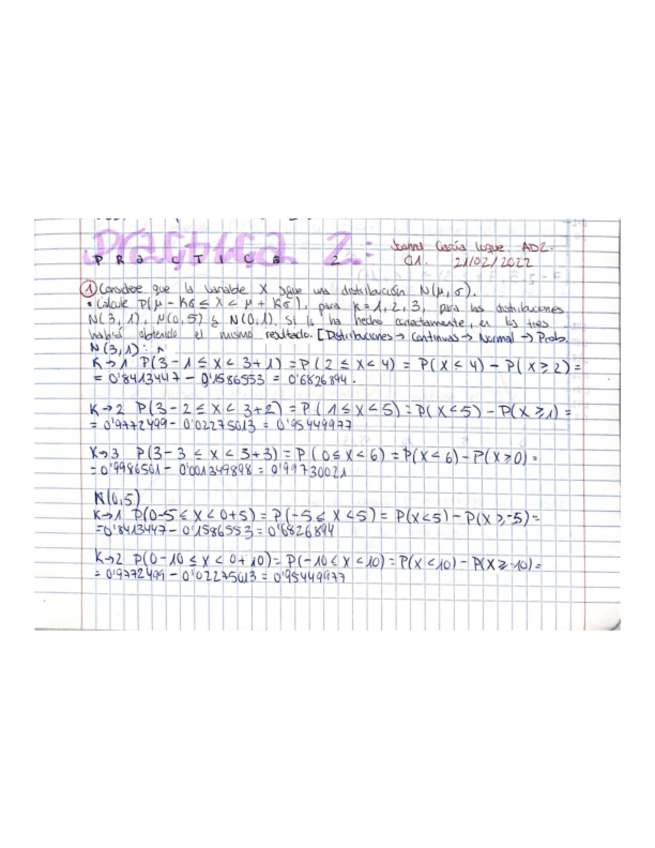 Práctica 2:
PRACTICA 2
Joanna García Luque AD2.
C1. 21/02/2022
① Considere que la variable X sigue una distribución N(μ, σ).
• Calcule P(μ - Kσ ≤ X < μ + Kσ), para K = 1, 2, 3, para las distribuciones
N(3, 1), N(0, 5) y N(0, 1). Si lo ha hecho correctamente, en los tres
habrá obtenido el mismo resultado. [Distribuciones → Continuas → Normal → Prob.
N(3, 1):
K→1 P(3 - 1 ≤ X < 3 + 1) = P(2 ≤ X < 4) = P(X < 4) - P(X ≥ 2) =
= 0'8413447 - 0'1586553 = 0'6826894.
K→2 P(3 - 2 ≤ X < 3 + 2) = P(1 ≤ X < 5) = P(X < 5) - P(X ≥ 1) =
= 0'9772499 - 0'02275013 = 0'95449977
K→3 P(3 - 3 ≤ X < 3 + 3) = P(0 ≤ X < 6) = P(X < 6) - P(X ≥ 0) =
= 0'9986501 - 0'001349898 = 0'99730021
N(0, 5)
K→1 P(0 - 5 ≤ X < 0 + 5) = P(-5 ≤ X < 5) = P(X < 5) - P(X ≥ -5) =
= 0'8413447 - 0'1586553 = 0'6826894
K→2 P(0 - 10 ≤ X < 0 + 10) = P(-10 ≤ X < 10) = P(X < 10) - P(X ≥ -10) =
= 0'9772499 - 0'02275013 = 0'95449977